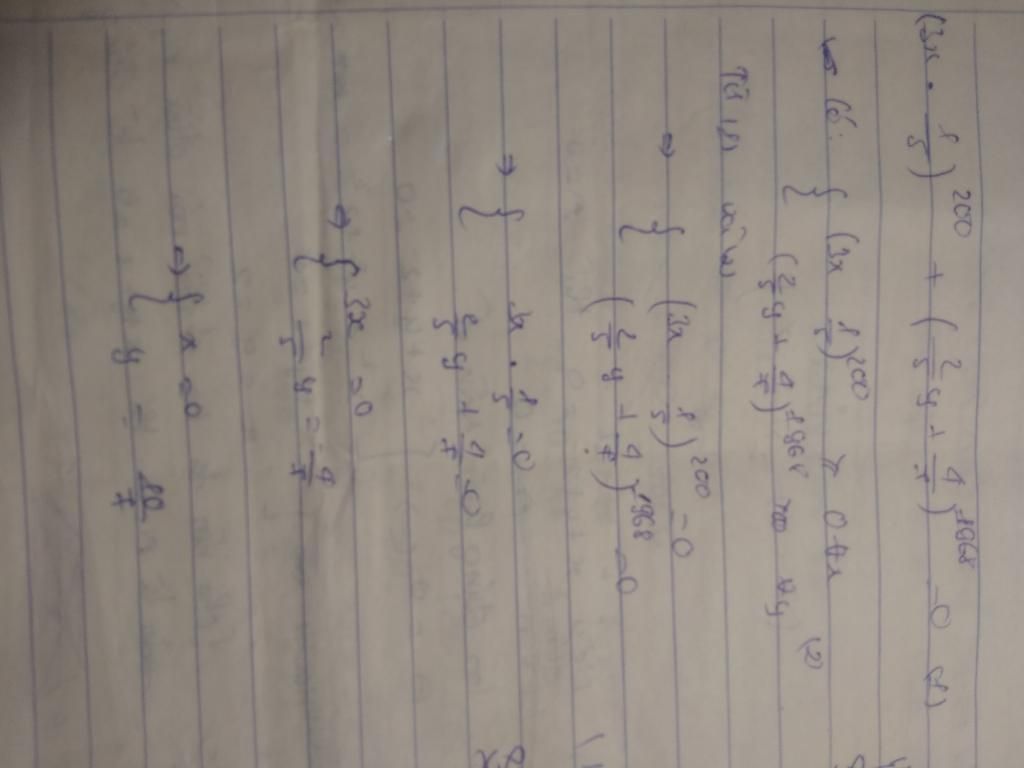 (3x · 1/5)^200 + (2/5 y + 4/7)^1968 = 0 (1)
Có: { (3x 1/5)^200 ≥ 0 ∀x
(2/5 y + 4/7)^1968 ≥ 0 ∀y (2)
Từ (1) và (2)
=> { (3x 1/5)^200 = 0
(2/5 y + 4/7)^1968 = 0
=> { 3x · 1/5 = 0
2/5 y + 4/7 = 0
=> { 3x = 0
2/5 y = -4/7
=> { x = 0
y = 10/7